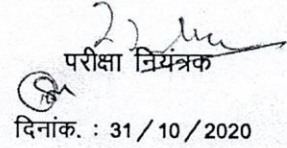 परीक्षा नियंत्रक
दिनांक. : 31 / 10 / 2020